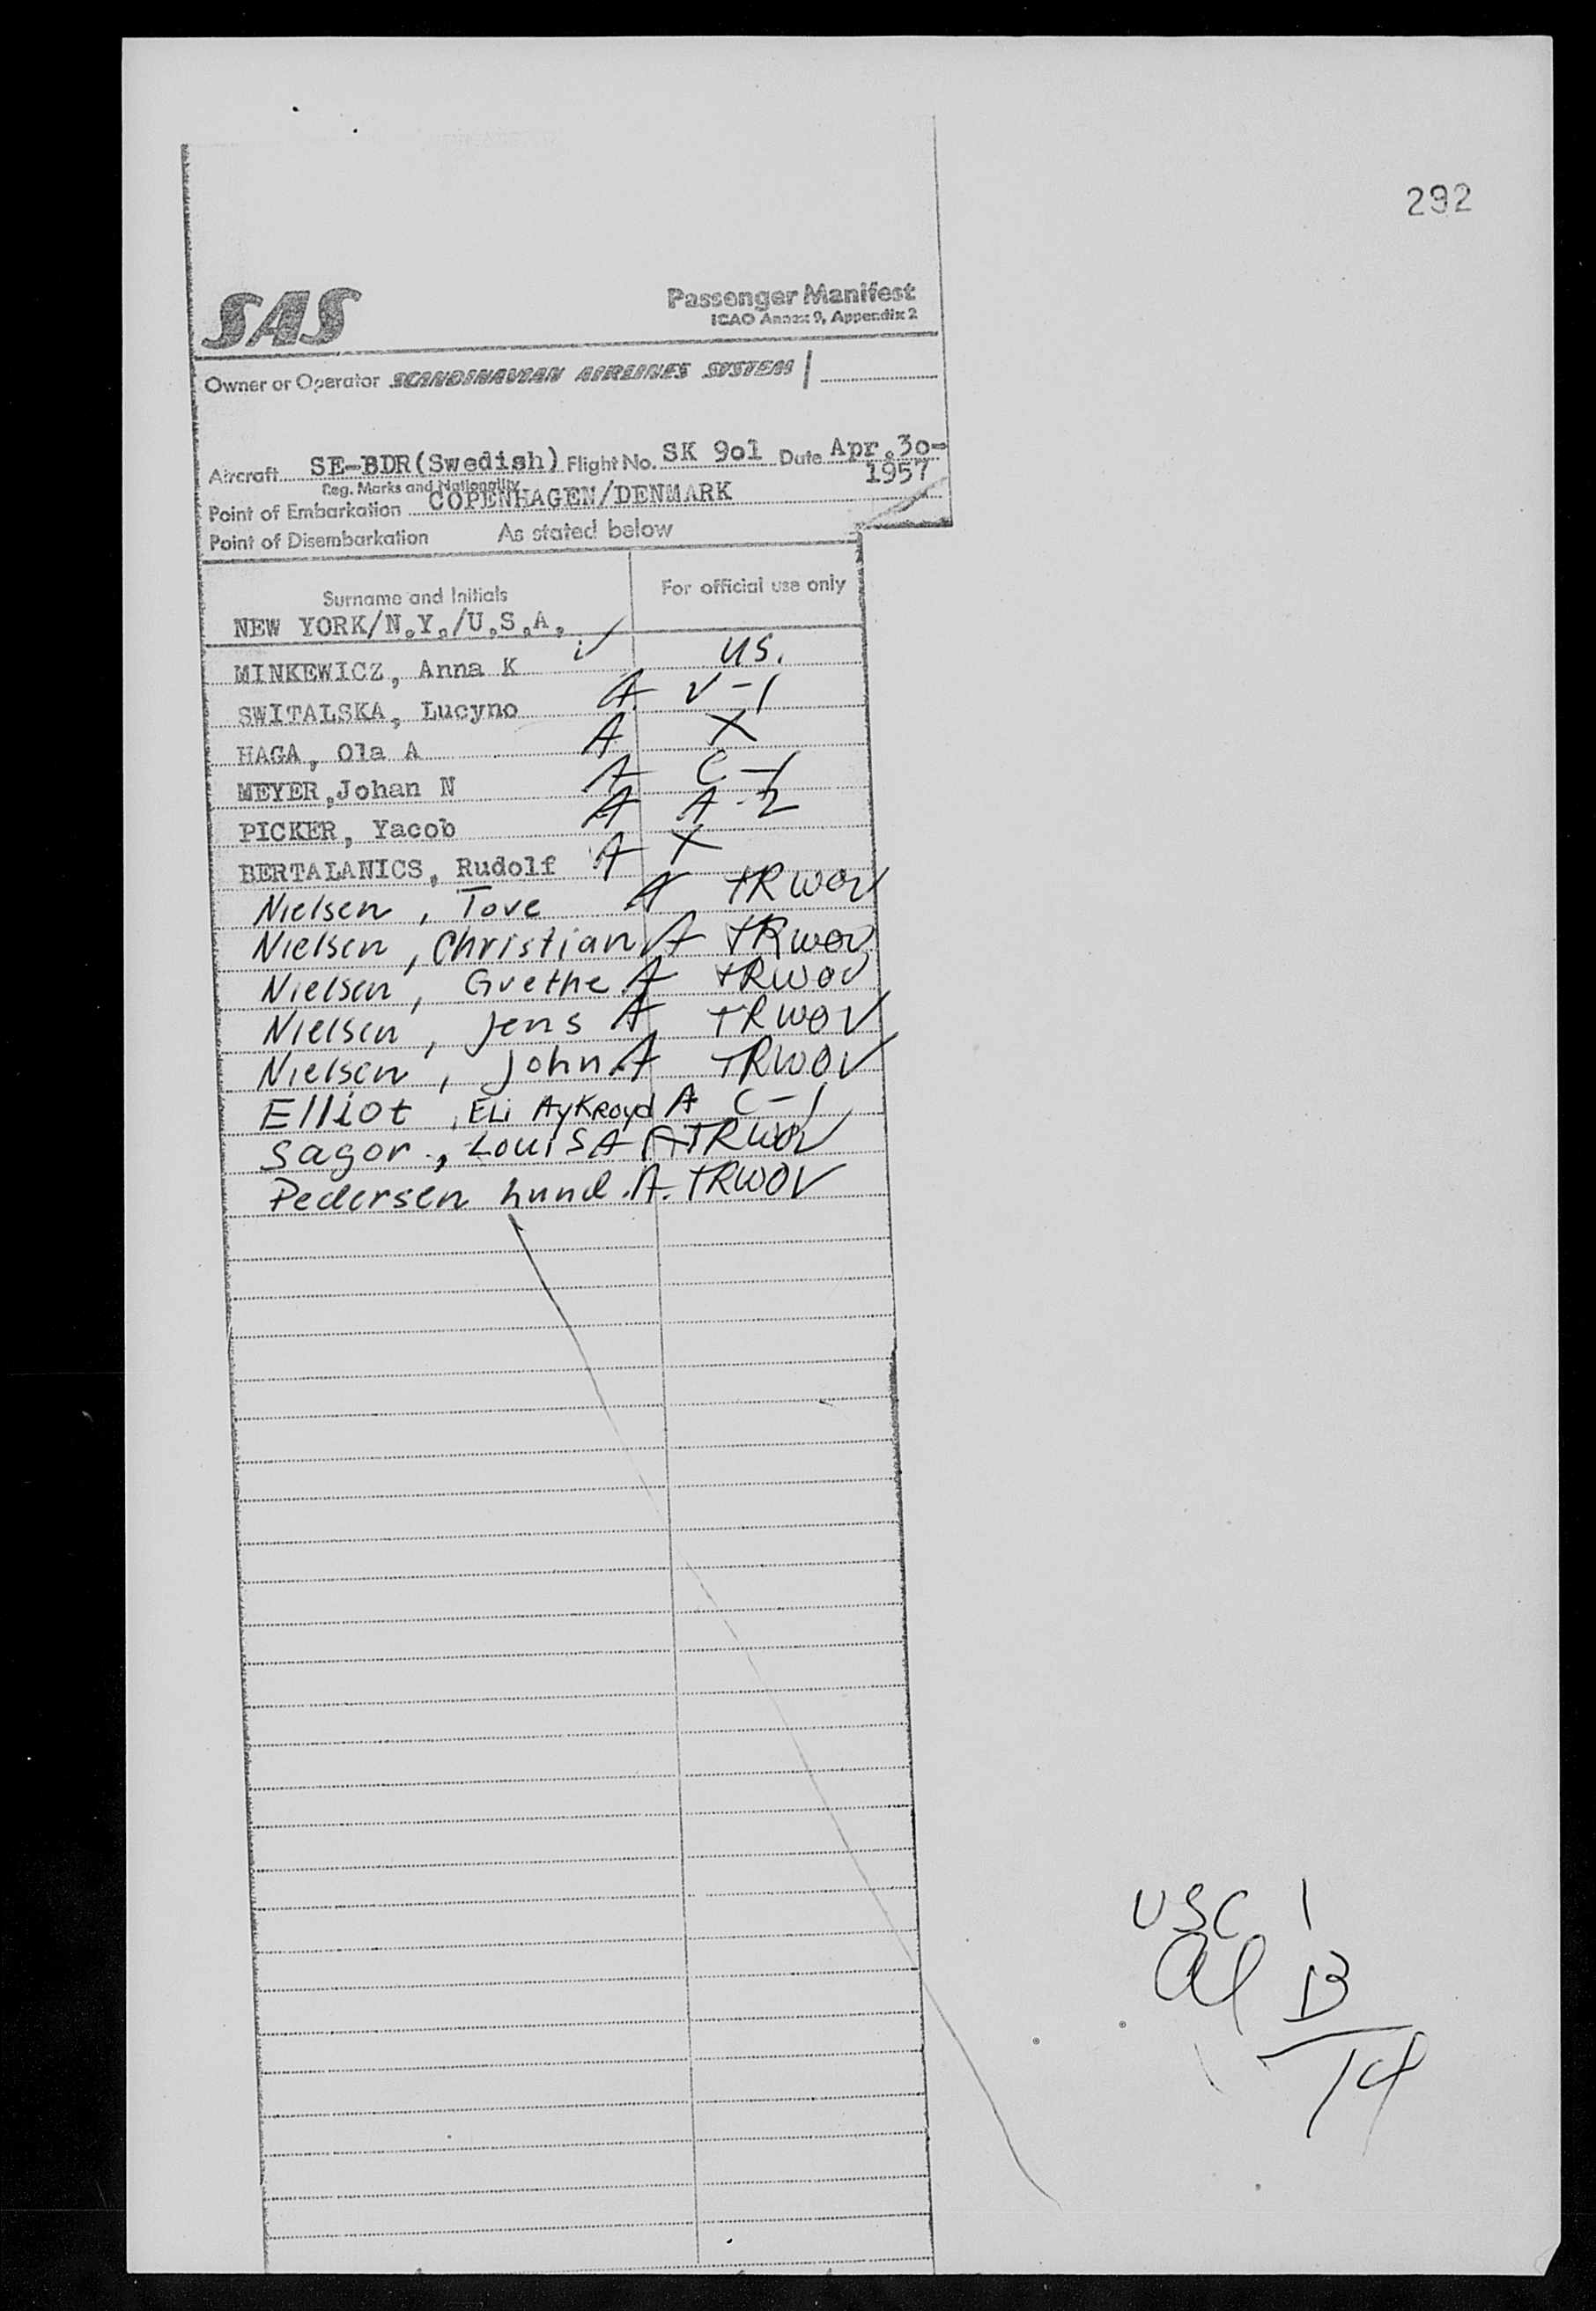 292
SAS
Passenger Manifest
ICAO Annex 9, Appendix 2
Owner or Operator SCANDINAVIAN AIRLINES SYSTEM
Aircraft SE-BDR(Swedish) Flight No. SK 9o1 Date Apr.3o-
1957
Reg. Marks and Nationality
Point of Embarkation COPENHAGEN/DENMARK
Point of Disembarkation As stated below
Surname and Initials For official use only
NEW YORK/N.Y./U.S.A.
MINKEWICZ, Anna K US.
SWITALSKA, Lucyno A V-1
HAGA, Ola A A X
MEYER,Johan N A C-1
PICKER, Yacob A A-2
BERTALANICS, Rudolf A X
Nielsen, Tove A TRWOV
Nielsen, Christian A TRWOV
Nielsen, Grethe A TRWOV
Nielsen, Jens A TRWOV
Nielsen, John A TRWOV
Elliot, Eli Aykroyd A C-1
Sagor, LouisA A TRWOV
Pedersen hund A. TRWOV
USC 1
al 13
14